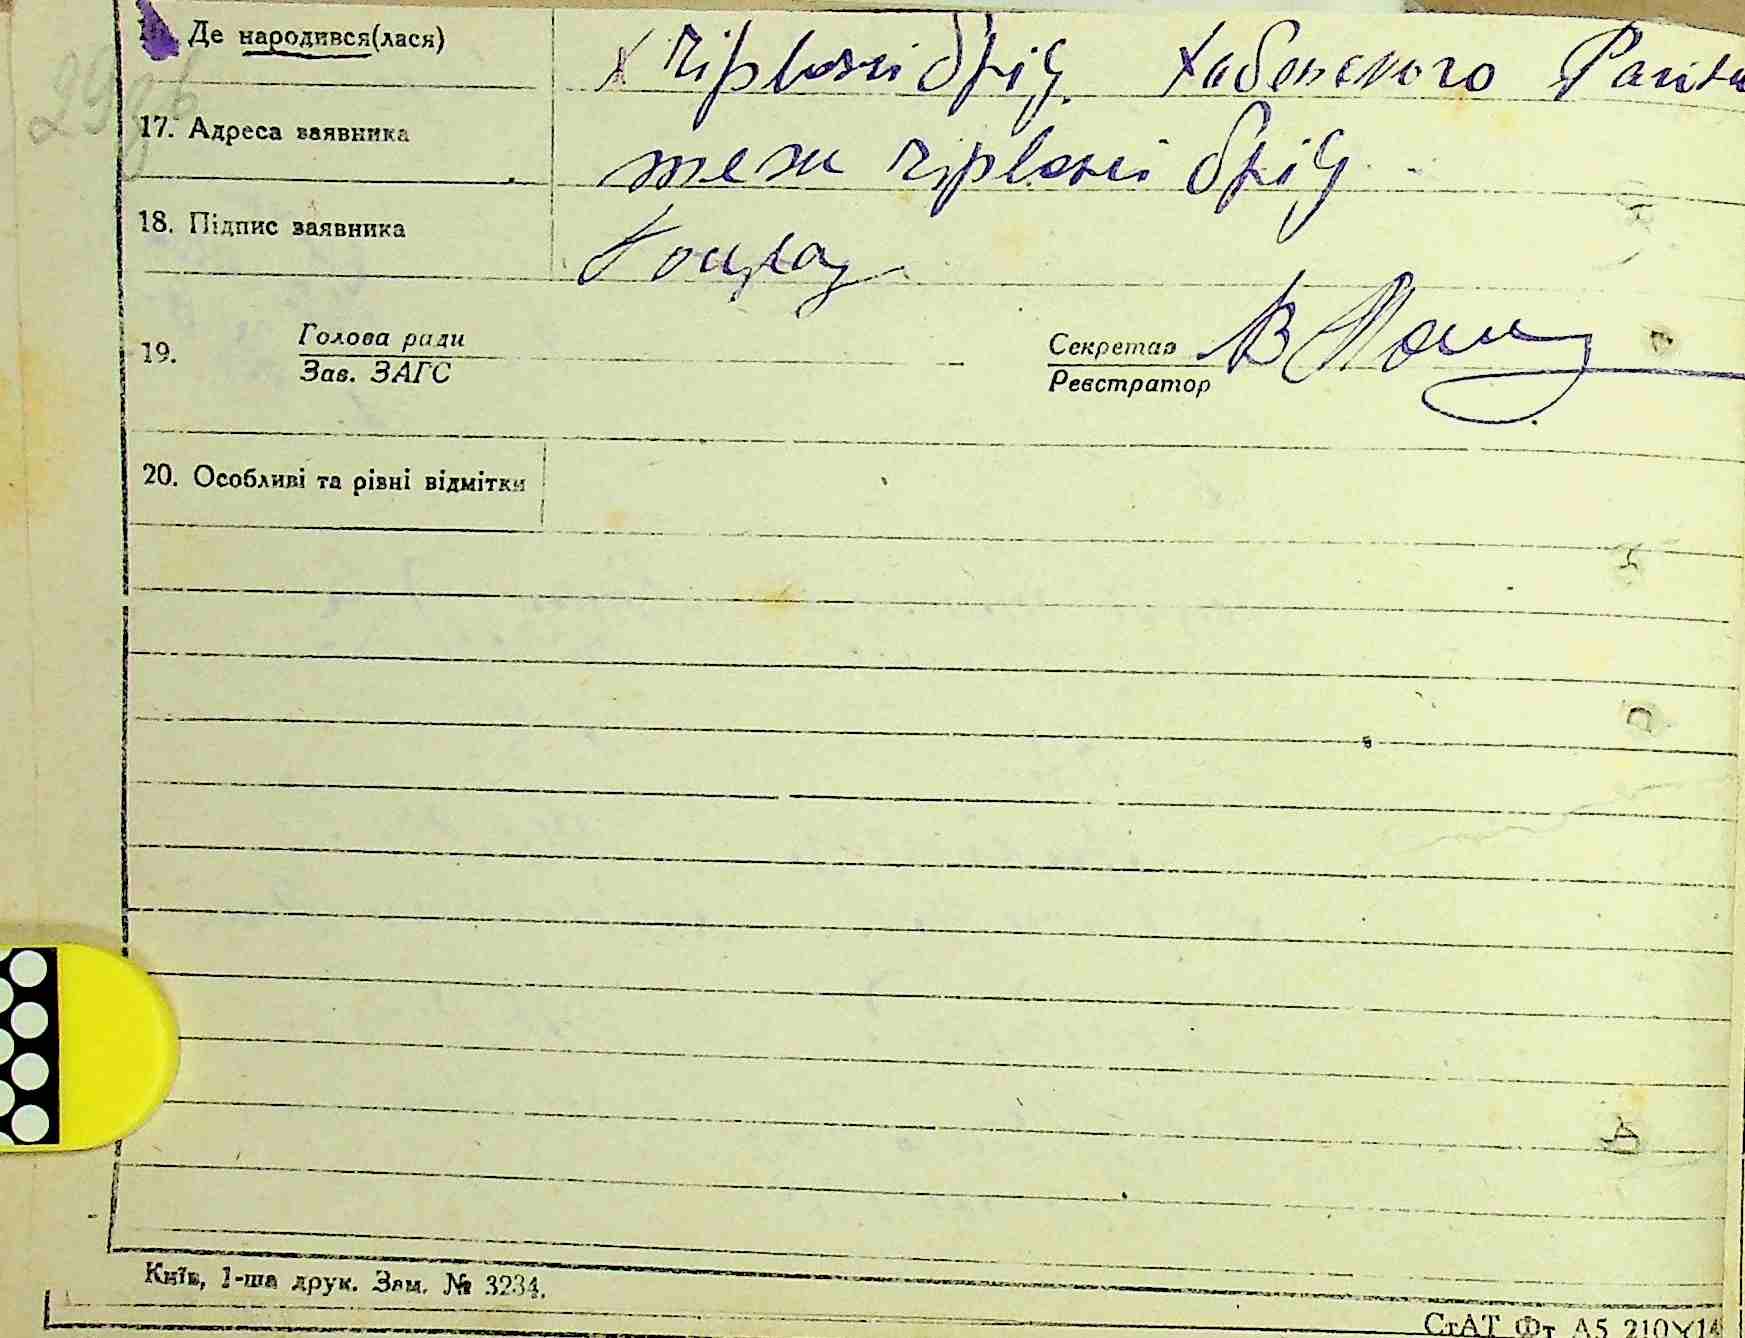 Де народився(лася) х чірвоні брід Хабенського Раю
17. Адреса заявника теж чірвоні брід
18. Підпис заявника
19. Голова ради Секретар
Зав. ЗАГС Реєстратор
20. Особливі та різні відмітки
Київ, 1-ша друк. Зам. № 3234.
СтАТ Фт А5 210×14